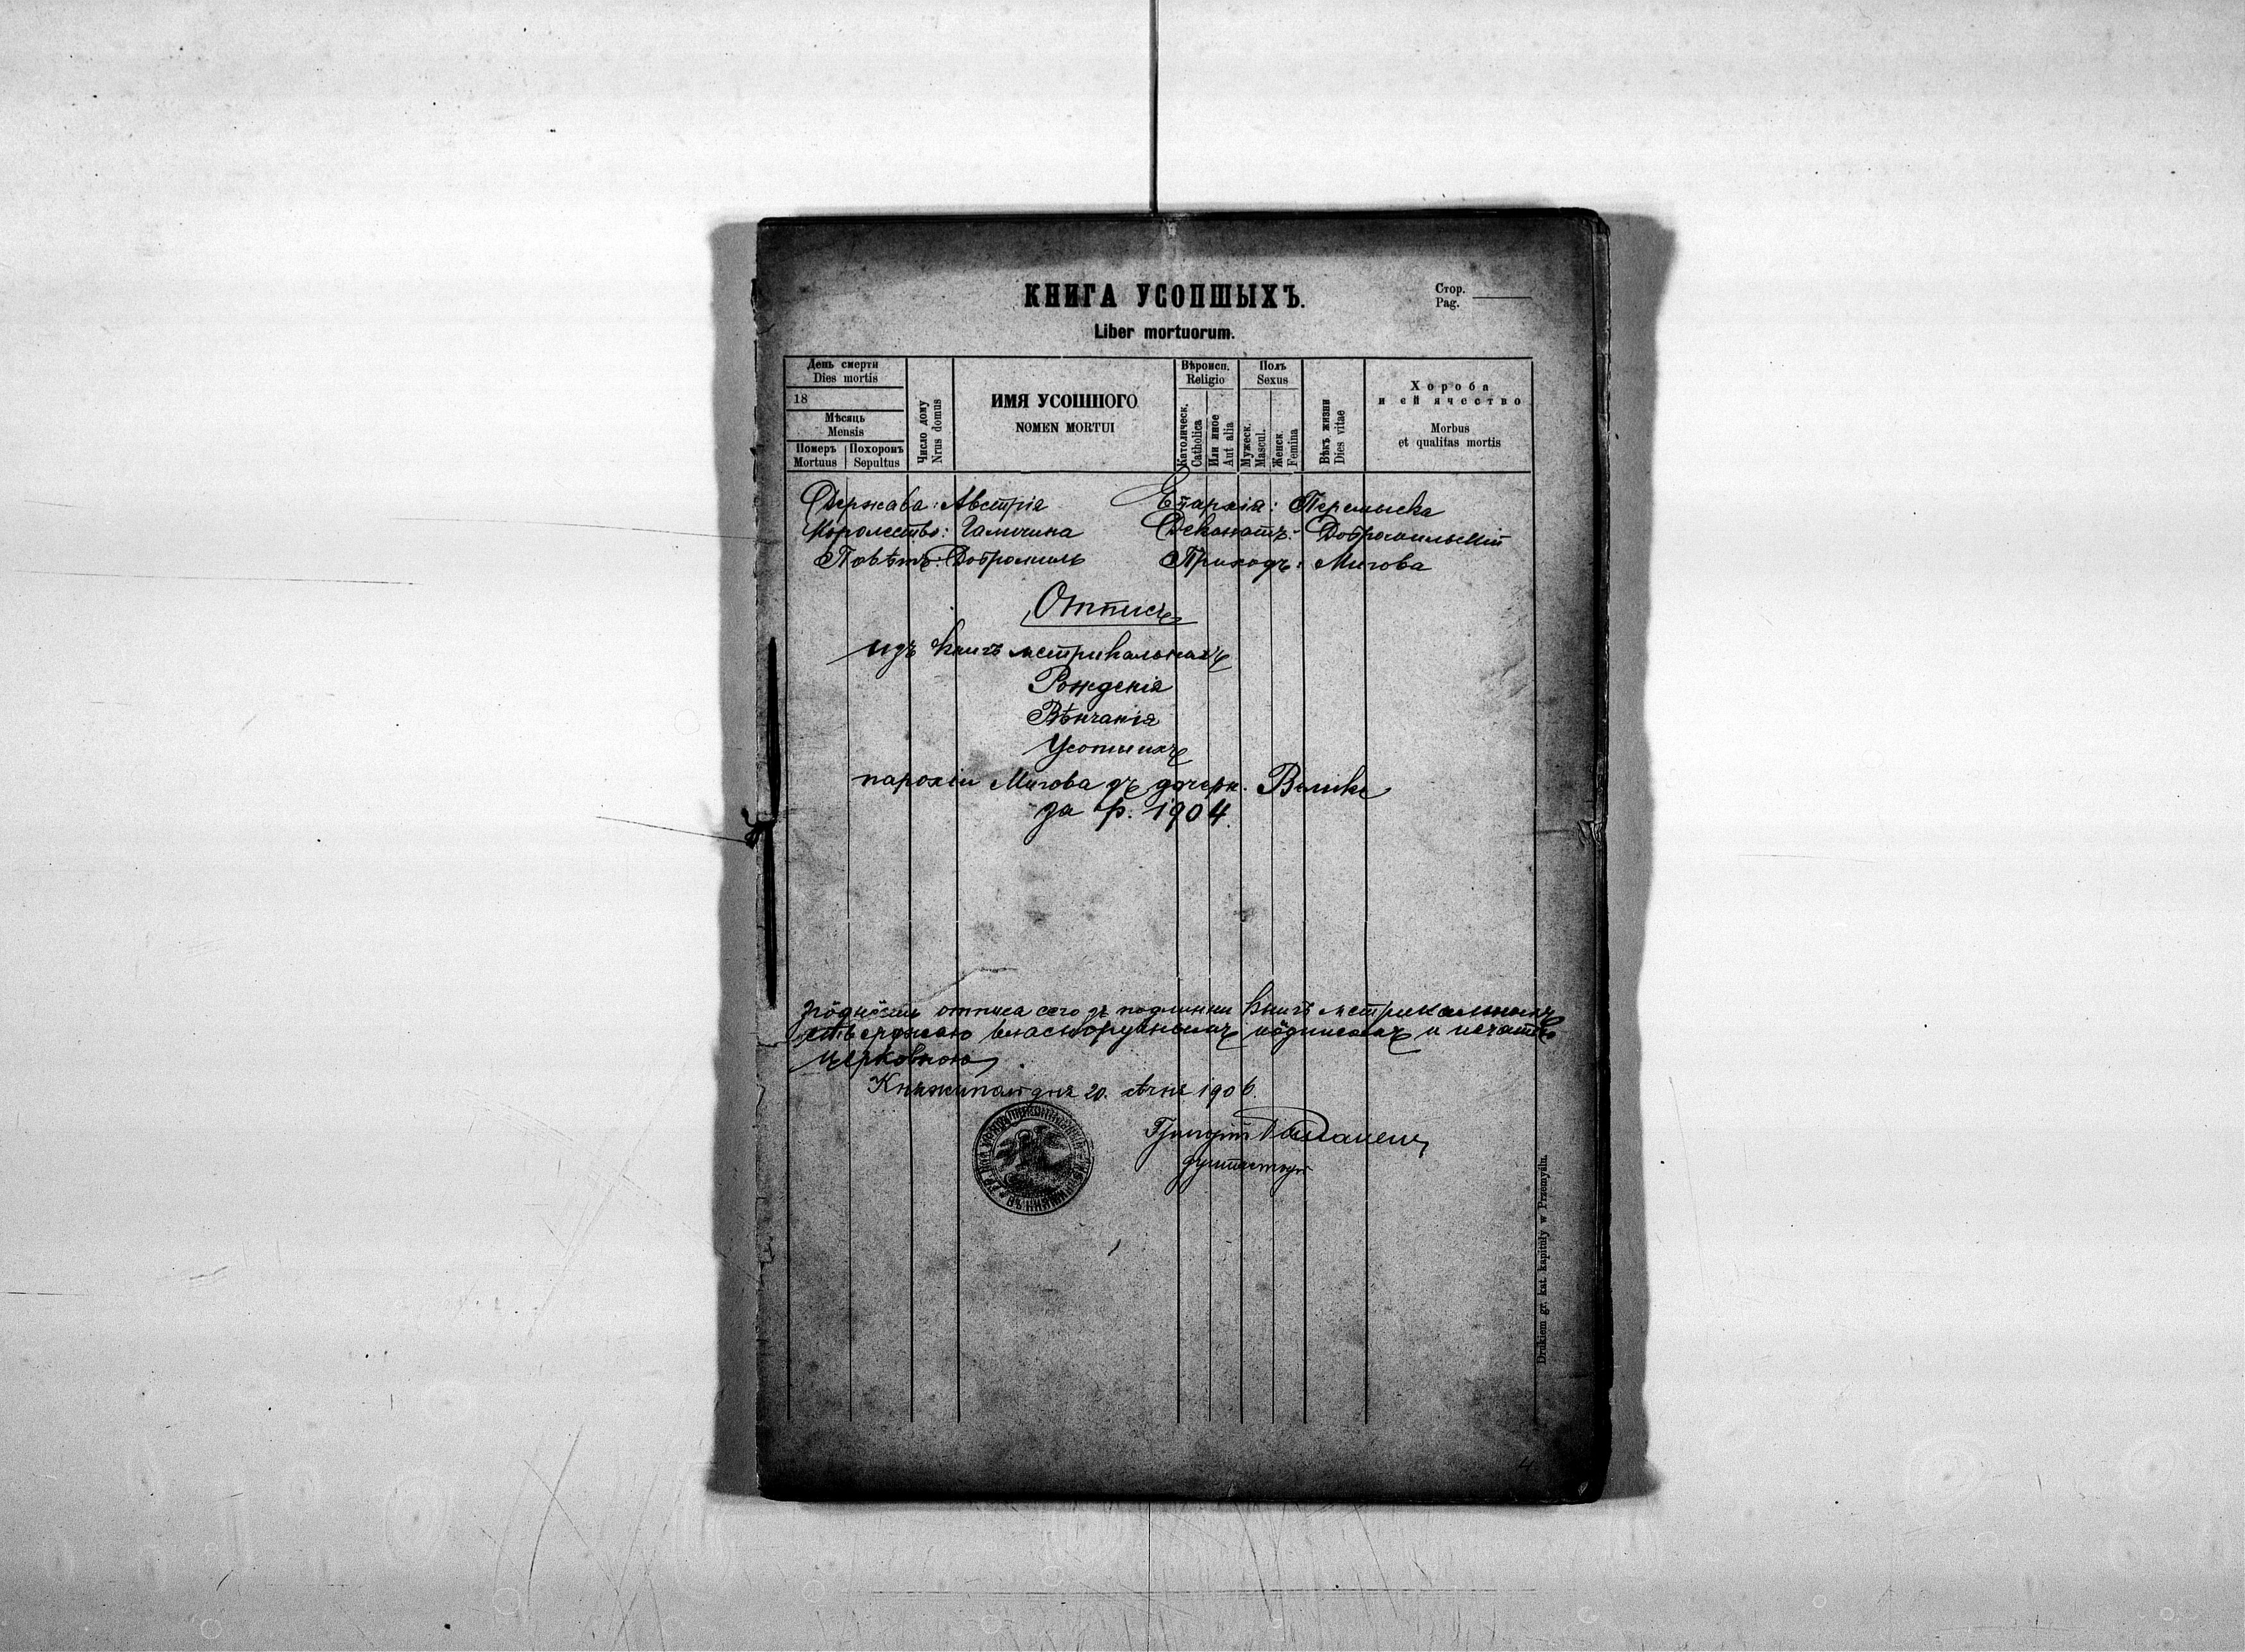 КНИГА УСОПШЫХЪ.
Liber mortuorum.
Стор.
Pag.
День смерти
Dies mortis
18
Мѣсяць
Mensis
Померъ
Mortuus
Похоронъ
Sepultus
Число дому
Nrus domus
ИМЯ УСОПШОГО
NOMEN MORTUI
Вѣроисп.
Religio
Католическ.
Catholica
Или иное
Aut alia
Полъ
Sexus
Мужеск.
Mascul.
Женск.
Femina
Вѣкъ жизни
Dies vitae
Хороба
и ей ячество
Morbus
et qualitas mortis
Держава: Австрія Епархія: Перемыска
Королество: Галичина Деканатъ: Добромильскій
Повѣтъ: Добромиль Приходъ: Мигова
Отписъ
изъ книгъ метрикальныхъ
Рожденія
Вѣнчанія
Усопшихъ
парохіи Мигова зъ дочерн.
за р. 1904.
Згôднôсть отписа сего зъ подлинни книгъ метрикальныхъ
ствержаю власноручнымъ пôдписомъ и печатію
церковною.
дня 20. сѣчня 1906.
Drukiem gr. kat. kapituły w Przemyślu.
4